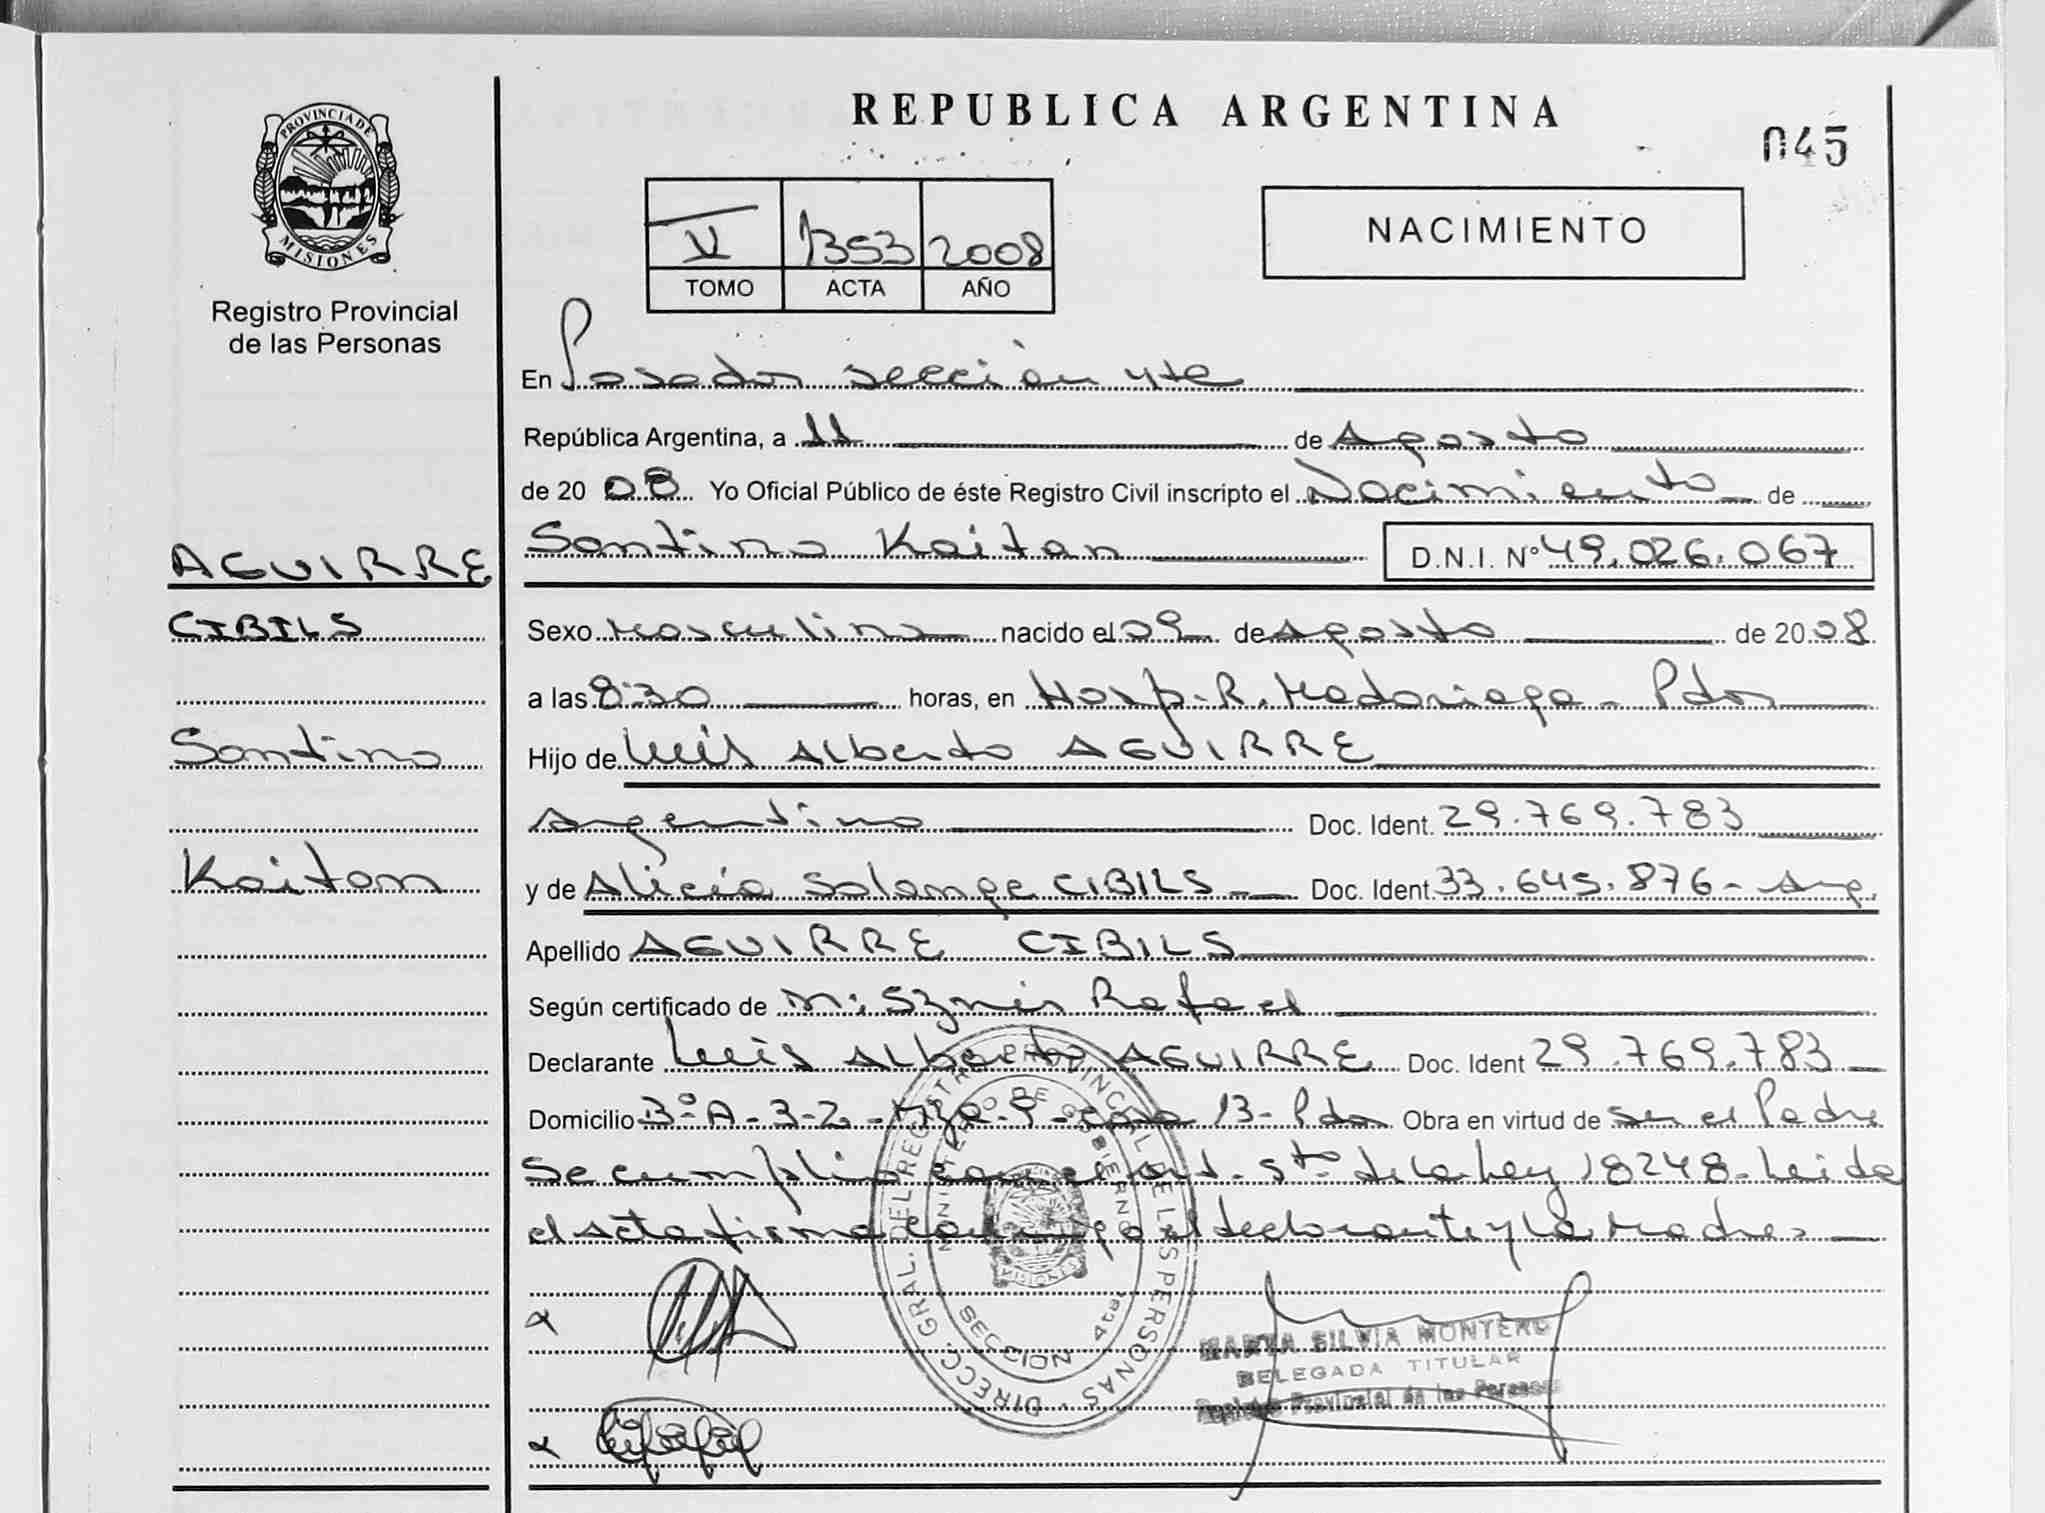 REPUBLICA ARGENTINA
045
PROVINCIA DE
MISIONES
Registro Provincial
de las Personas
V 1353 2008
TOMO ACTA AÑO
NACIMIENTO
En Posadas sección 4ta
República Argentina, a 11 de Agosto
de 2008 Yo Oficial Público de éste Registro Civil inscripto el Nacimiento de
Santino Kaitan D.N.I. Nº 49.026.067
AGUIRRE
CIBILS
Santino
Kaitan
Sexo Masculino nacido el 09 de Agosto de 2008
a las 8:30 horas, en Hosp. R. Madariaga - Pdas
Hijo de Luis Alberto AGUIRRE
Argentino Doc. Ident. 29.769.783
y de Alicia Solange CIBILS Doc. Ident. 33.645.876 - Arg.
Apellido AGUIRRE CIBILS
Según certificado de Rafael
Declarante Luis Alberto AGUIRRE Doc. Ident 29.769.783
Domicilio 3º A - 3-2 - Mza - 9 - casa 13 - Pdas Obra en virtud de ser el Padre
Se cumplio con el art. 5to de la Ley 18248 - Leida
el acta firma conmigo el declarante y la Madre
DIRECC. GRAL. DEL REGISTRO PROVINCIAL DE LAS PERSONAS
MINISTERIO DE GOBIERNO
MISIONES
SECCION 4ta.
MARTA SILVIA MONTERO
DELEGADA TITULAR
Registro Provincial de las Personas